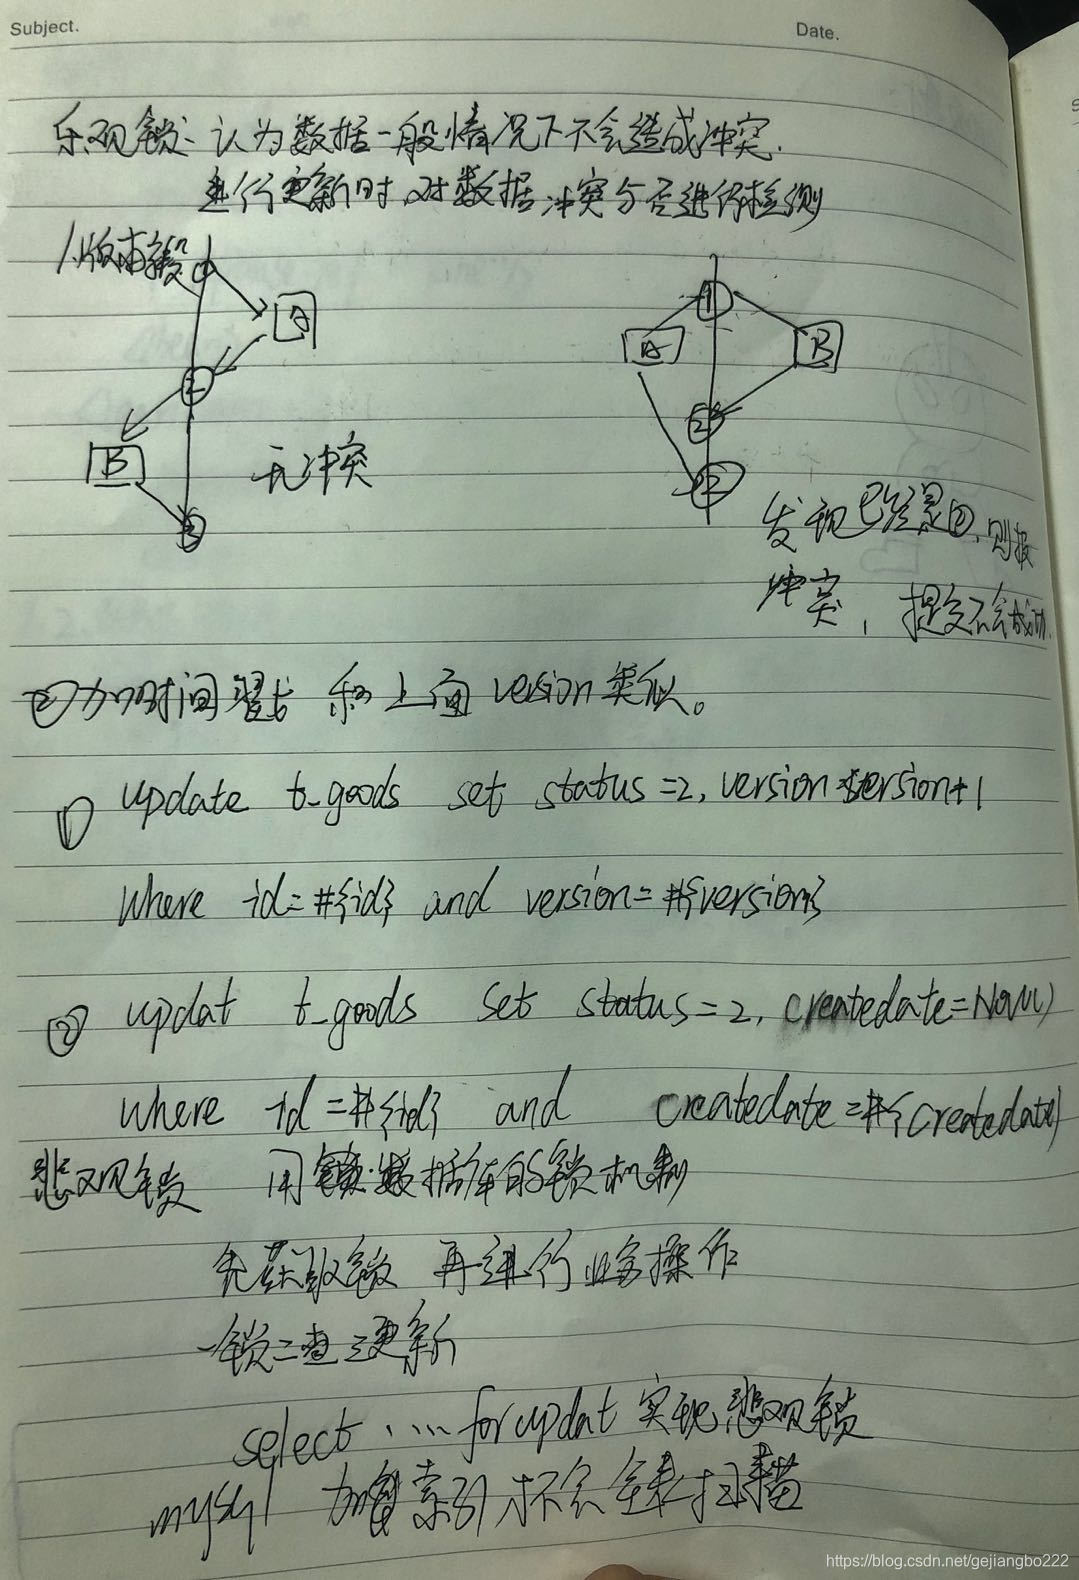 Subject.
Date.
乐观锁: 认为数据一般情况下不会造成冲突.
进行更新时,对数据冲突与否进行检测
1.版本号
1
A
2
B
3
无冲突
1
A
B
2
2
发现已经是②,则报
冲突,提交不会成功.
②加时间戳 和上面version类似。
① update t_goods set status=2, version=version+1
where id=#{id} and version=#{version}
② updat t_goods set status=2, createdate=Now()
where id=#{id} and createdate=#{createdate}
悲观锁 用数据库的锁机制
先获取锁 再进行业务操作
一锁二查三更新
select ..... for updat 实现悲观锁
mysql 加 索引才不会全表扫描
https://blog.csdn.net/gejiangbo222